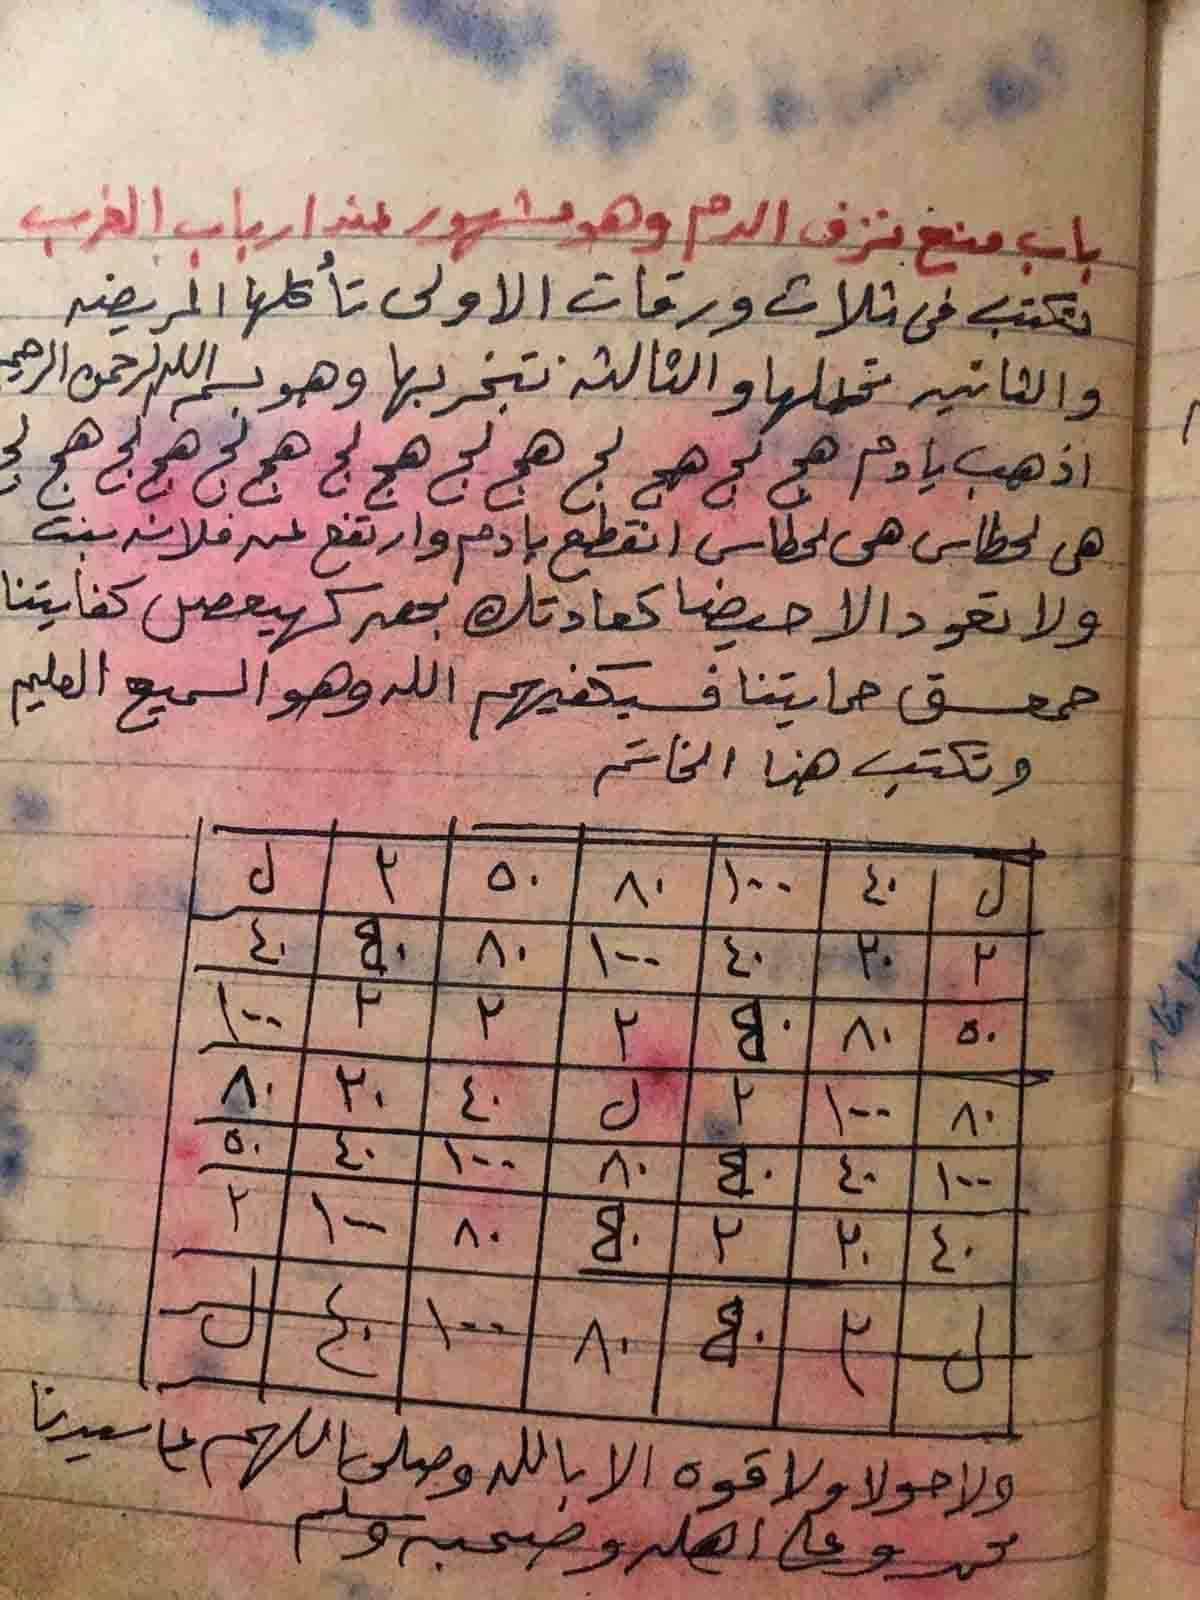 باب منع نزف الدم وهو مشهور عند ارباب الغرب
تكتب فى ثلاث ورقات الاولى تأكلها المريضه
والثانيه تحملها والثالثه تتبخر بها وهو بسم الله الرحمن الرحيم
اذهب يادم هج لج هج لج هج لج هج لج هج لج هج لج هج لج
هى لحطاس هى لحطاس انقطع يادم وارتفع عن فلانه بنت
ولا تعود الا حيضا كعادتك بحق كهيعص كفايتنا
حمعسق حمايتنا فسيكفيهم الله وهو السميع العليم
وتكتب هذا الخاتم
ل ٤٠ ١٠٠ ٨٠ ٥٠ ٢ ل
٢ ٢٠ ٤٠ ١٠٠ ٨٠ ٤٠
٥٠ ٨٠ ٢ ٢ ٢ ١٠٠
٨٠ ١٠٠ ٢ ل ٤٠ ٢٠ ٨٠
١٠٠ ٤٠ ٨٠ ١٠٠ ٤٠ ٥٠
٤٠ ٢٠ ٢ ٨٠ ١٠٠ ٢
ل ٢ ٨٠ ١٠٠ ٤٠ ل
ولا حولا ولا قوه الا بالله وصلى اللهم على سيدنا
محمد وعلى اله وصحبه وسلم